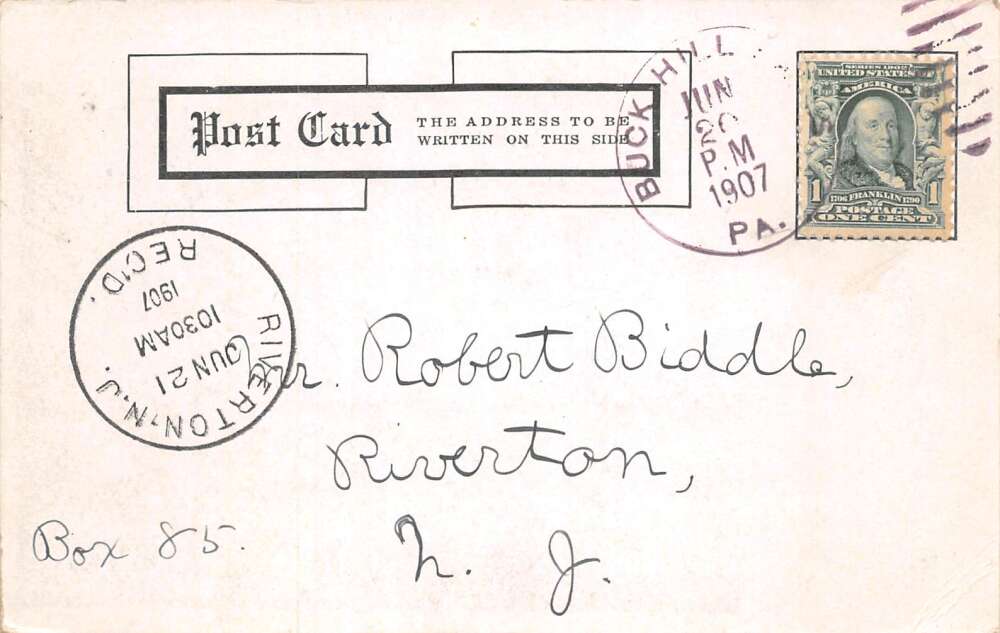 Post Card
THE ADDRESS TO BE
WRITTEN ON THIS SIDE
BUCK HILL
JUN
20
P.M
1907
PA.
SERIES 1902
UNITED STATES OF
AMERICA
1 1706 FRANKLIN 1790 1
POSTAGE
ONE CENT
RIVERTON, N.J.
JUN 21
1030AM
1907
REC'D.
Mr. Robert Biddle,
Riverton,
N. J.
Box 85.